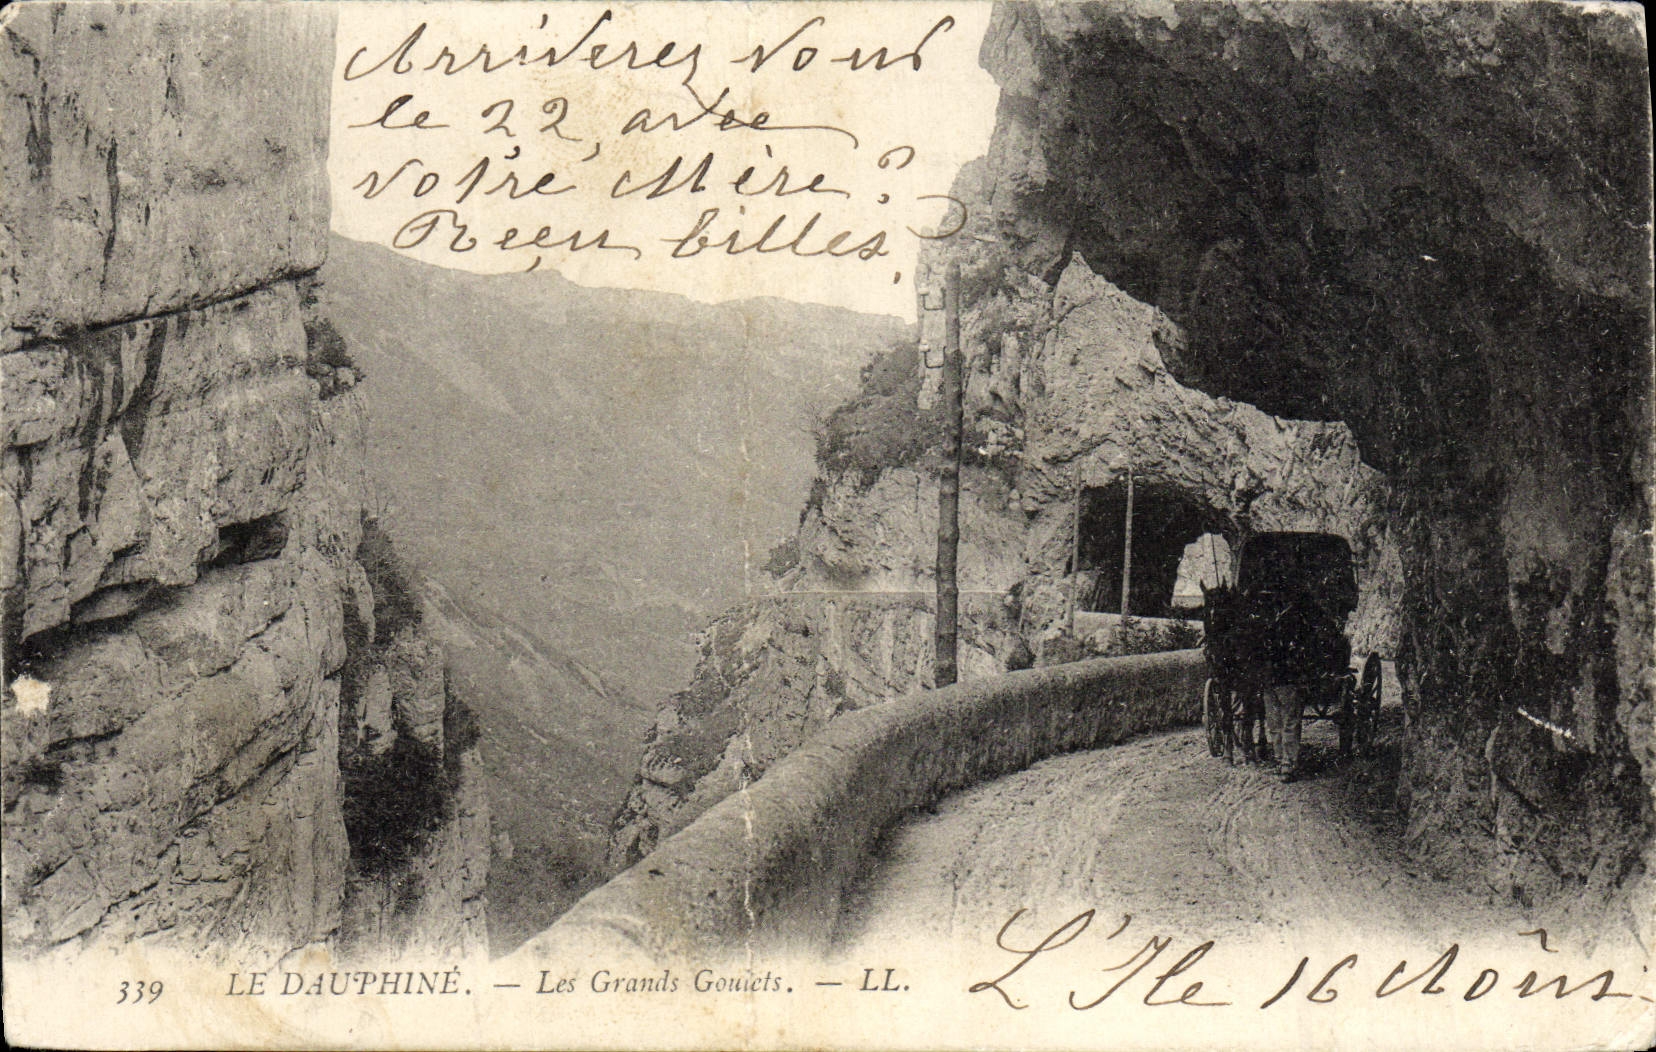 Arriverez vous
le 22 avec
votre Mère ?
Reçu billes,
339 LE DAUPHINÉ. — Les Grands Goulets. — LL.
L'Ile 16 Août.